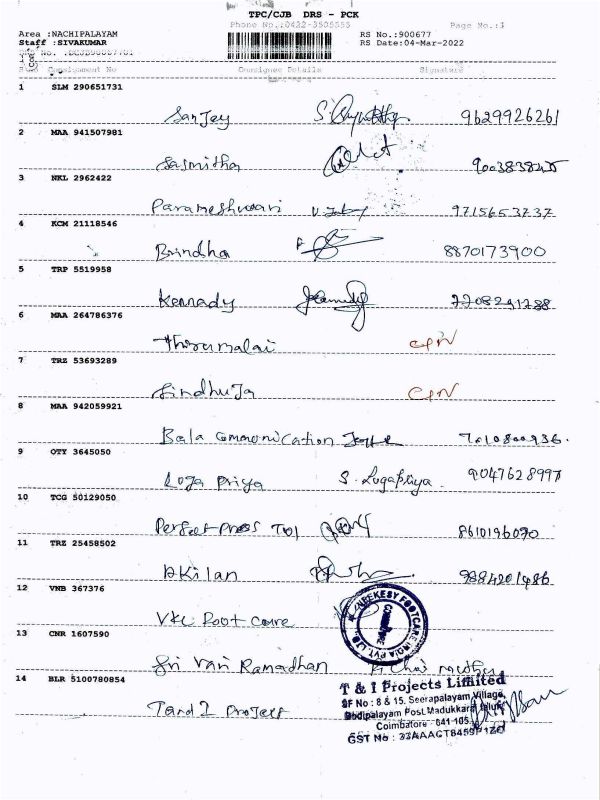 TPC/CJB DRS - PCK
Phone No.:0422-3505555
Page No.:1
Area :NACHIPALAYAM
RS No.:900677
Staff :SIVAKUMAR
RS Date:04-Mar-2022
Consignment No Consignee Details Signature
1 SLM 290651731
Sanjey 9629926261
2 MAA 941507981
Sasmitha
3 NKL 2962422
Parameshwari 9715653737
4 KCM 21118546
Brindha 8870173900
5 TRP 5519958
Kennady
6 MAA 264786376
Thirumalai
7 TRZ 53693289
Sindhuja
8 MAA 942059921
Bala Communication
9 OTY 3645050
Roja Priya S. Logapriya 9047628997
10 TCG 50129050
Perfect Press Tol 8610196090
11 TRZ 25458502
Akilan 9884201486
12 VNB 367376
VKC Foot care
13 CNR 1607590
Sri Vari Ramadhan
14 BLR 5100780854
T and I Project
VEEKESY FOOTCARE (INDIA) PVT. LTD.
T & I Projects Limited
SF No : 8 & 15. Seerapalayam Village,
Bodipalayam Post, Madukkarai Taluk
Coimbatore - 641 105
GST No : 33AAACT8459P1ZO